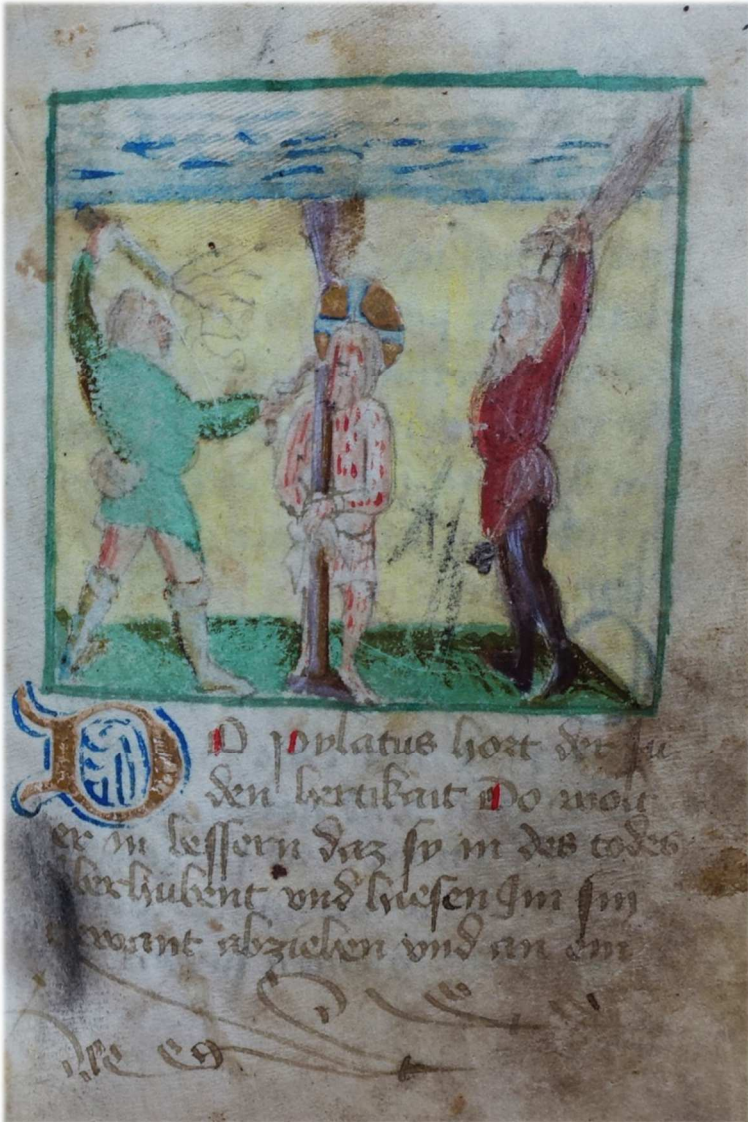 DO pylatus hort der ju
den hertikait Do wolt
er in bessern daz sy in des todes
vberhubent vnd hiesen Im sin
gewant abziehen vnd an ein